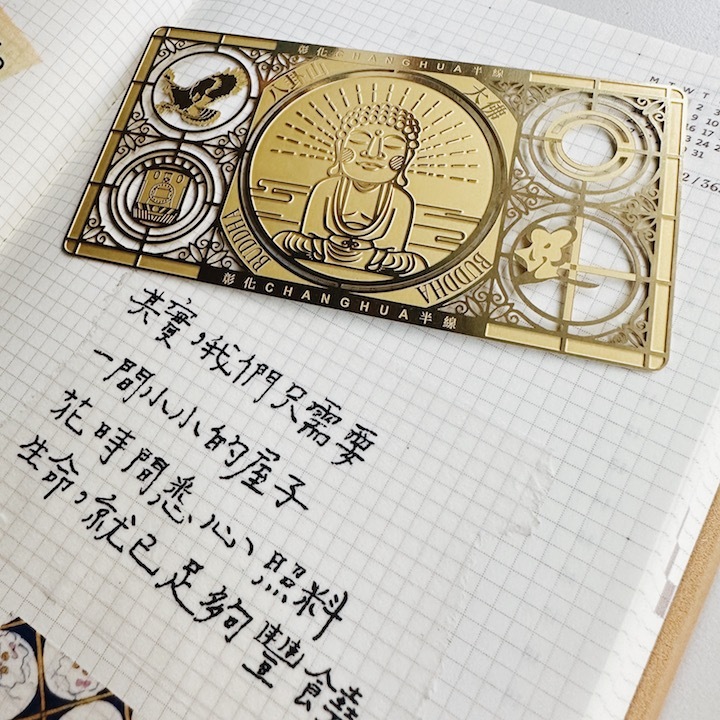 彰化 CHANGHUA 半線
八卦山 大佛
BUDDHA BUDDHA
彰化 CHANGHUA 半線
M T W T
2 3
9 10
16 17
23 24
31
其實，我們只需要
一間小小的屋子
花時間悉心照料
生命，就已足夠豐饒